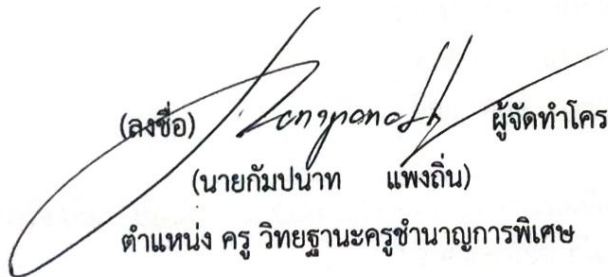 (ลงชื่อ) ผู้จัดทำโคร
(นายกัมปนาท แพงถิ่น)
ตำแหน่ง ครู วิทยฐานะครูชำนาญการพิเศษ